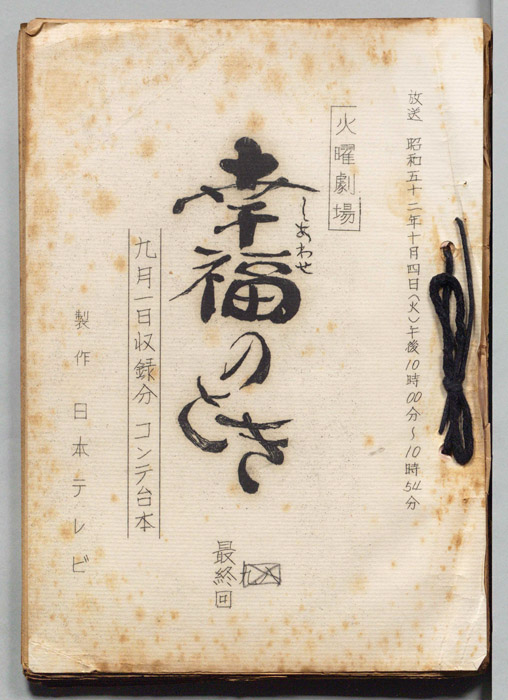 放送 昭和五十二年十月四日(火)午後10時00分～10時54分
火曜劇場
しあわせ
幸福のとき
最終回
九月一日収録分 コンテ台本
製作 日本テレビ